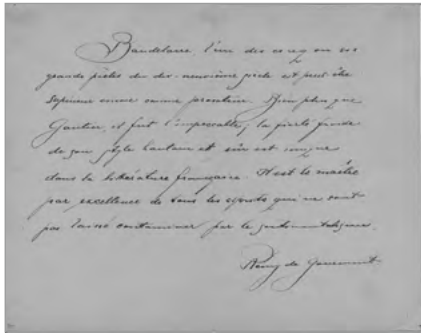 Baudelaire, l'un des cinq ou six
grands poètes du dix-neuvième siècle et peut-être
supérieur encore comme prosateur. Bien plus que
Gautier, il fut l'impeccable; la pureté froide
de son style hautain et sûr est unique
dans la littérature française. Il est le maître
par excellence de tous les esprits qui ne sont
pas laissé contaminer par le sentimentalisme.
Remy de Gourmont